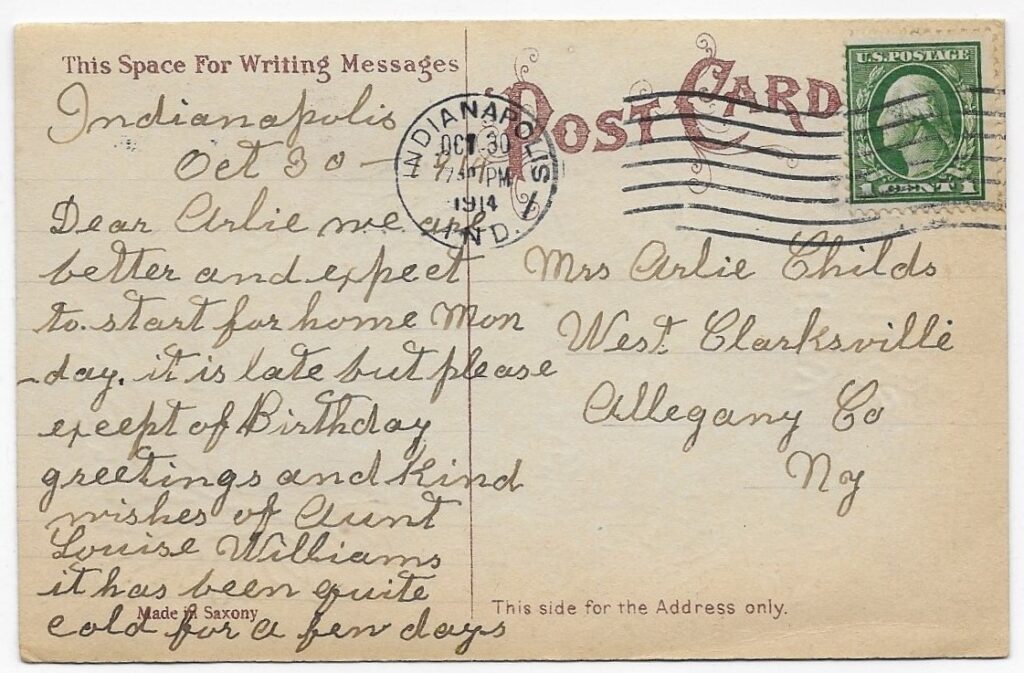 This Space For Writing Messages
POST CARD
U.S. POSTAGE
1 CENT 1
INDIANAPOLIS
OCT 30
PM
1914
IND.
Indianapolis
Oct 30 —
Dear Arlie we are
better and expect
to start for home Mon
-day. it is late but please
except of Birthday
greetings and kind
wishes of Aunt
Louise Williams
it has been quite
cold for a few days
Made in Saxony
Mrs Arlie Childs
West Clarksville
Allegany Co
Ny
This side for the Address only.